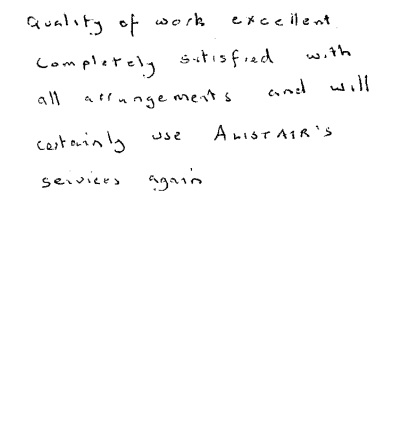 Quality of work excellent
Completely satisfied with
all arrangements and will
certainly use ALISTAIR'S
services again